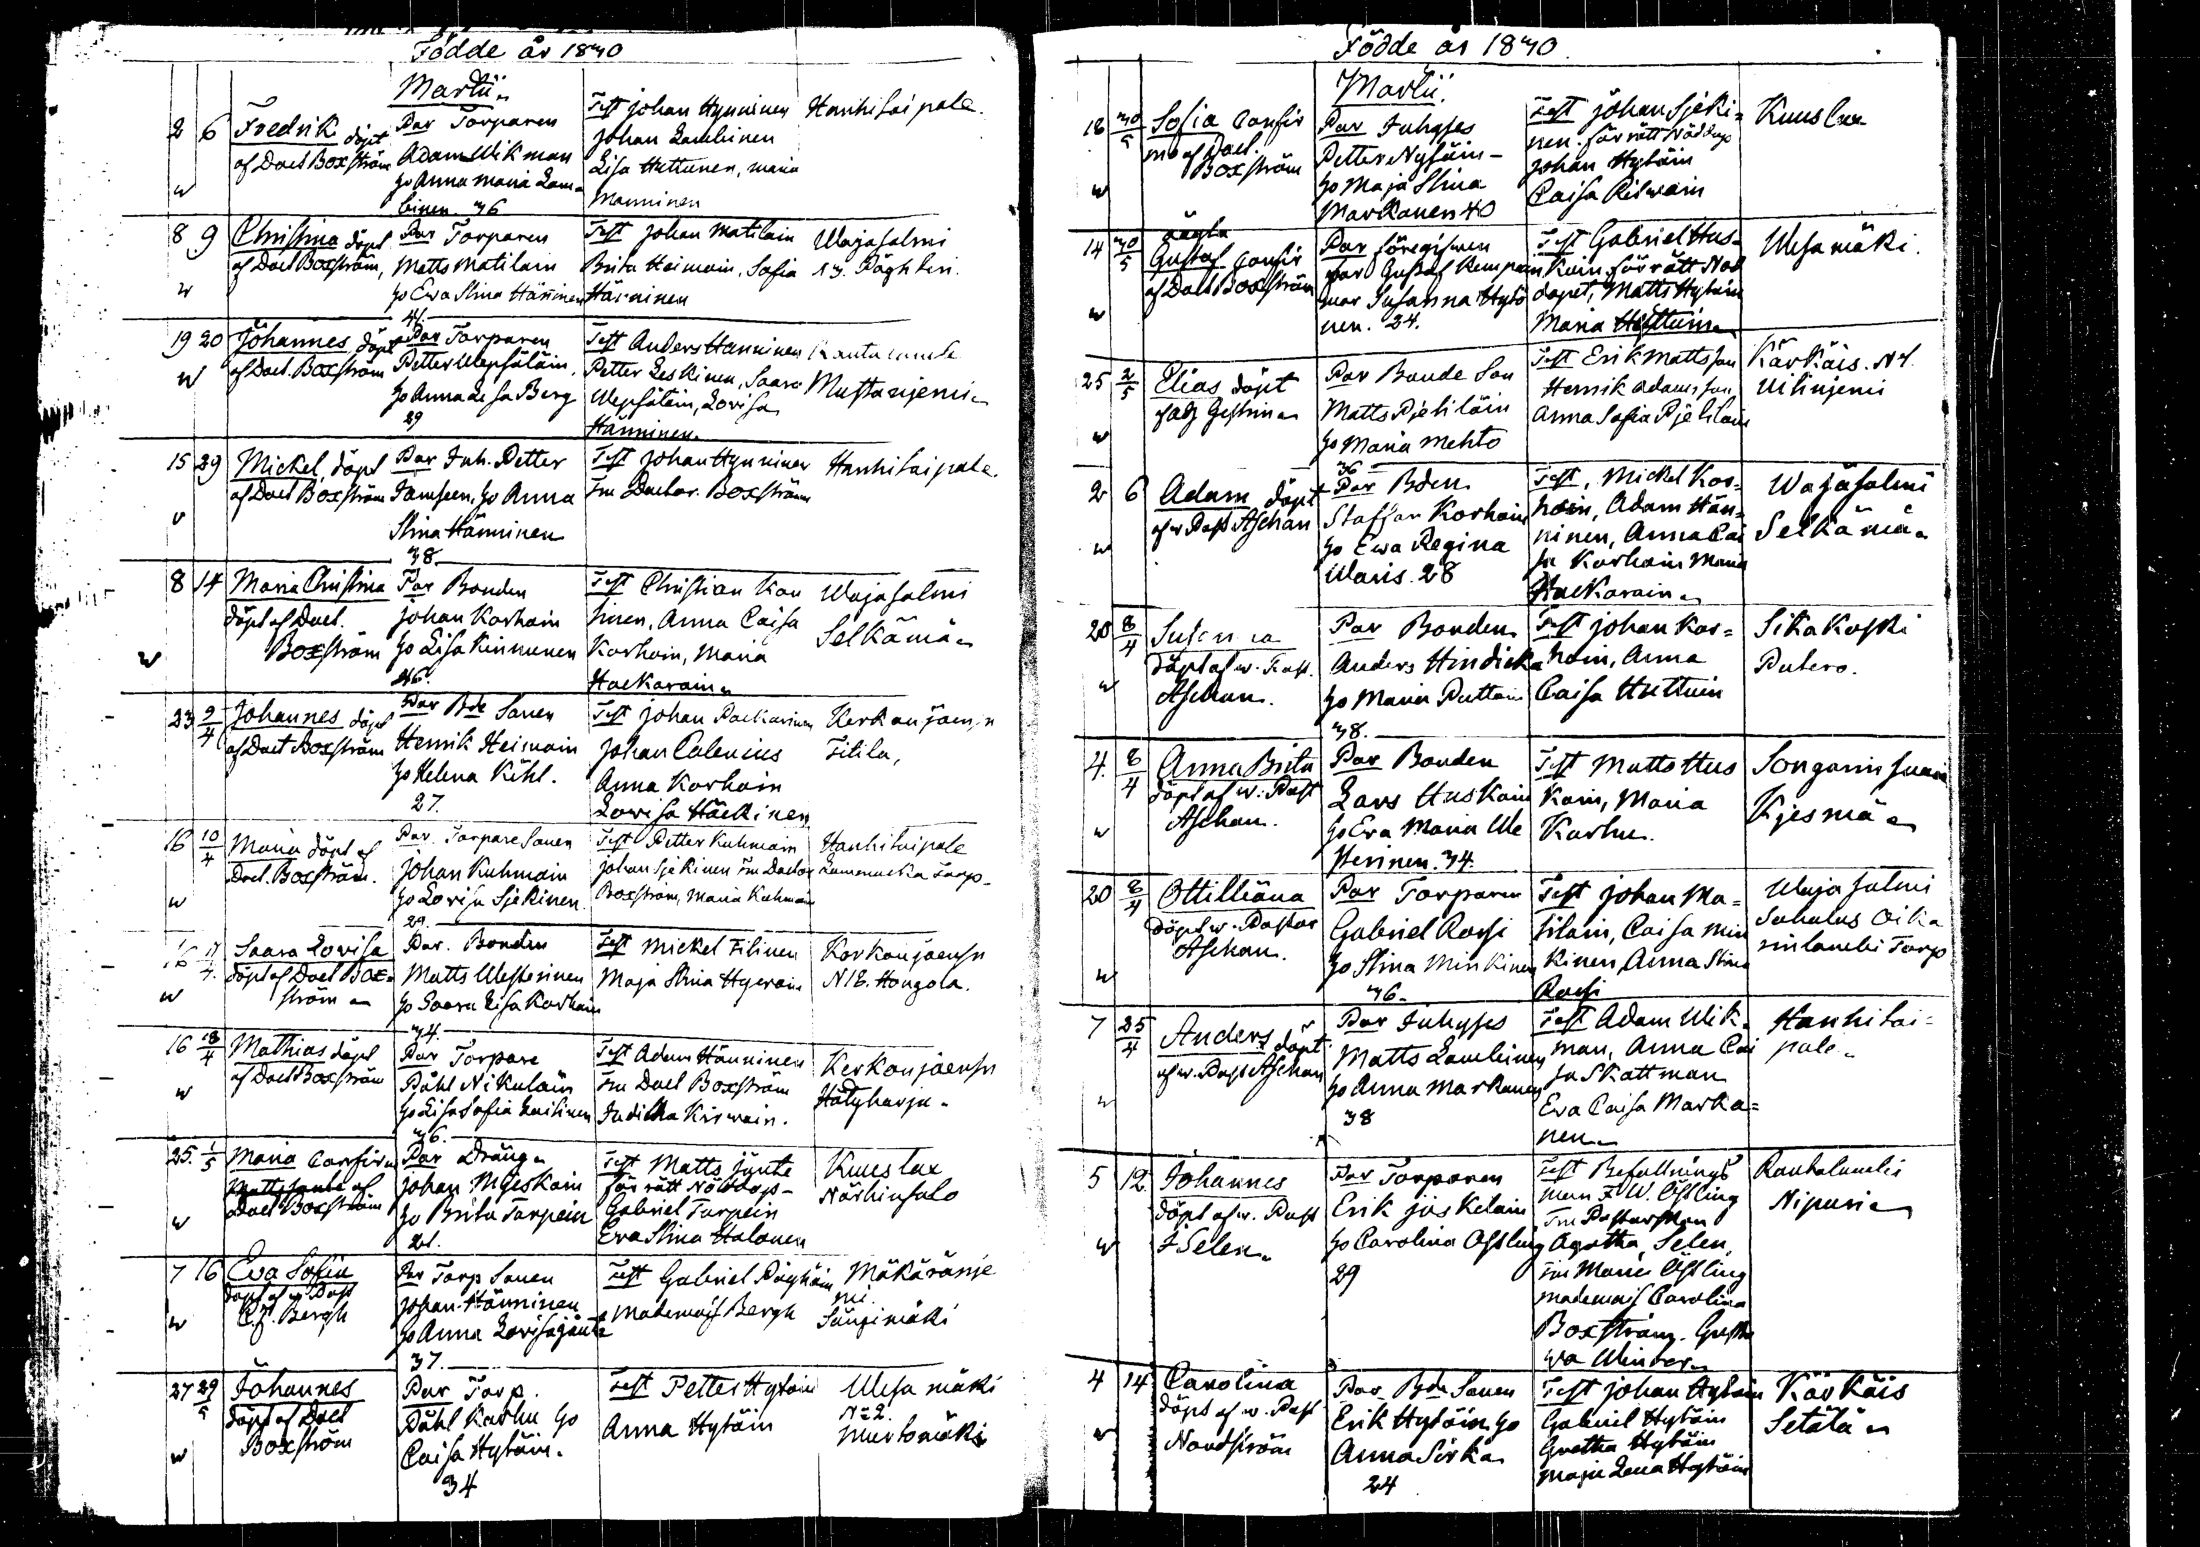 Födde år 1840
Martii
2 6 Fredrik döpt
af Doct Boxström
Par Torparen
Adam Wikman
ho Anna Maria Lam=
binen. 36
Test Johan Hynninen
Johan Lambinen
Lisa Huttunen, Maria
Manninen
Hanhitaipale.
8 9 Christina döpt
af Doct Boxström,
Par Torparen
Matts Matilain
ho Ewa Stina Hänninen
41.
Test Johan Matilain
Brita Heimoin, Sofia
Hänninen
Wajasalmi
19 20 Johannes döpt
af Doct. Boxström
Par Torparen
Petter Wepsäläin,
ho Anna Lisa Berg
29
Test Anders Hänninen
Petter Leskinen, Saara
Wepsäläin, Lovisa
Hänninen.
Mustanjemi
15 29 Mickel, döpt
af Doct Boxström
Par Inh. Petter
Jamseen, ho Anna
Stina Hänninen
38.
Test Johan Hynninen
Fru Doctor. Boxström
Hanhitaipale.
8 14 Maria Christina
döpt af Doct.
Boxström
Par Bonden
Johan Korhoin
ho Lisa Kinnunen
46.
Test Christian Kau
hinen, Anna Caisa
Korhoin, Maria
Hackarain
Wajasalmi
Selkämä
23 9/4 Johannes döpt
af Doct Boxström
Par Bde Sonen
Henrik Heimoin
ho Helena Kihl.
27.
Test Johan Packarinen
Johan Calenius
Anna Korhoin
Lovisa Häckinen
Kerkonjoensu
Tilila,
16 10/4 Maria döpt af
Doct. Boxström.
Par Torpare Sonen
Johan Kuhmoin
ho Lovisa Sjekinen.
29
Test Petter Kuhmoin
Johan Sjekinen Fru Doctor
Boxström, Maria Kuhmoin
Hanhitaipale
16 17/4 Saara Lovisa
döpt af Doct Box=
ström
Par. Bonden
Matts Westerinen
ho Saara Lisa Korhoin
34.
Test Mickel Tilinen
Maja Stina Hyvärin
Kerkonjoensu
Hongola.
16 18/4 Mathias döpt
af Doct Boxström
Par Torpare
Påhl Nikulain
ho Lisa Sofia Laitinen
36.
Test Adam Hänninen
Fru Doct Boxström
Judicka Kirwain.
Kerkonjoensu
Hätyharju
25. 1/5 Maria Confirm
af
Doct Boxström
Par Dräng
Johan
ho Brita Tarpein
21.
Test Matts Jynte
för rätt Nöddop
Gabriel Tarpein
Eva Stina Halonen
Kuuslax
Närhinsalo
7 16 Eva Sofia
döpt af w Past
C. J. Bergh
Par Torp Sonen
Johan Hänninen
ho Anna Lovisa Jäntti
37.
Test Gabriel Påghäin
Mademois Bergh
Mäkäränje
mi
27 29/5 Johannes
döpt af Doct
Boxström
Par Torp.
Påhl Karhu ho
Caisa Hytöin.
34
Test Petter Hytöin
Anna Hytöin
Wesamäki
N:2.
Murtomäki
Födde år 1840.
Martii.
18 30/5 Sofia Confir
me af Doct.
Boxström
Par Inhyses
Petter Nytäin
ho Maja Stina
Markanen 40
Test Johan Sjeki=
nen. för rätt nöddop
Johan Hytöin
Caisa Riswain
Kuuslax
14 30/5 oägta
Gustaf Confir
af Doct Boxström
Par föregifwen
far Gustaf Kempain
mor Susanna Hytö
nen. 24.
Test Gabriel Hus=
koin för rätt Nöd
döpet, Matts Hytöin
Maria Huttuin
Wesamäki.
25 2/5 Elias döpt
Par Bonde Son
Matts Pjetiläin
ho Maria Mehto
36
Test Erik Mattsson
Henrik Adamsson
Anna Sofia Pjetilain
Kärkäis. N4.
Uitinjemi
2 6 Adam döpt
af w Past Aschan
Par Bden
Staffan Korhoin
ho Ewa Regina
Waris. 28
Test, Mickel Kor=
hoin, Adam Hän=
ninen, Anna Cai
sa Korhoin Maria
Hackarain
Wajasalmi
Selkämä
28 8/4 Susanna
döpt af w. Past.
Aschan.
Par Bonden
Anders Hindicka
ho Maria Puttoin
38.
Test Johan Kor=
hoin, Anna
Caisa Huttuin
Sikakoski
Putero.
4. 8/4 Anna Brita
döpt af w. Past
Aschan.
Par Bonden
Lars Huskoin
ho Eva Maria We
sterinen. 34.
Test Matts Hus
koin, Maria
Karhu.
Songarinsaari
Kjesmä
20 8/4 Ottilliana
döpt w. Pastor
Aschan.
Par Torparen
Gabriel Rossi
ho Stina Minkinen
36.
Test Johan Ma=
tilain, Caisa Min
kinen, Anna Stina
Rossi
Wajasalmi
7 25/4 Anders döpt
af w. Past Aschan
Par Inhyses
Matts Lambinen
ho Anna Markanen
38
Test Adam Wik
man, Anna Cai
sa Skattman
Eva Caisa Marka=
nen
Hanhitai=
pale
5 12 Johannes
döpt af w. Past
I Selen
Par Torparen
Erik Jäskelain
ho Carolina Östling
29
Test Befallnings
man F W. Östling
Fru Pastorskan
Agatha, Selen,
Fru Maria Östling
Mademois Carolina
Boxström. Gusta
va Winter
Rautalambi
4 14 Carolina
döpt af w. Past
Nordström
Par Bde Sonen
Erik Hytöin ho
Anna Sirka
24
Test Johan Hytöin
Gabriel Hytöin
Gretha Hytöin
Maja Lena Hytöin
Kärkäis
Setälä